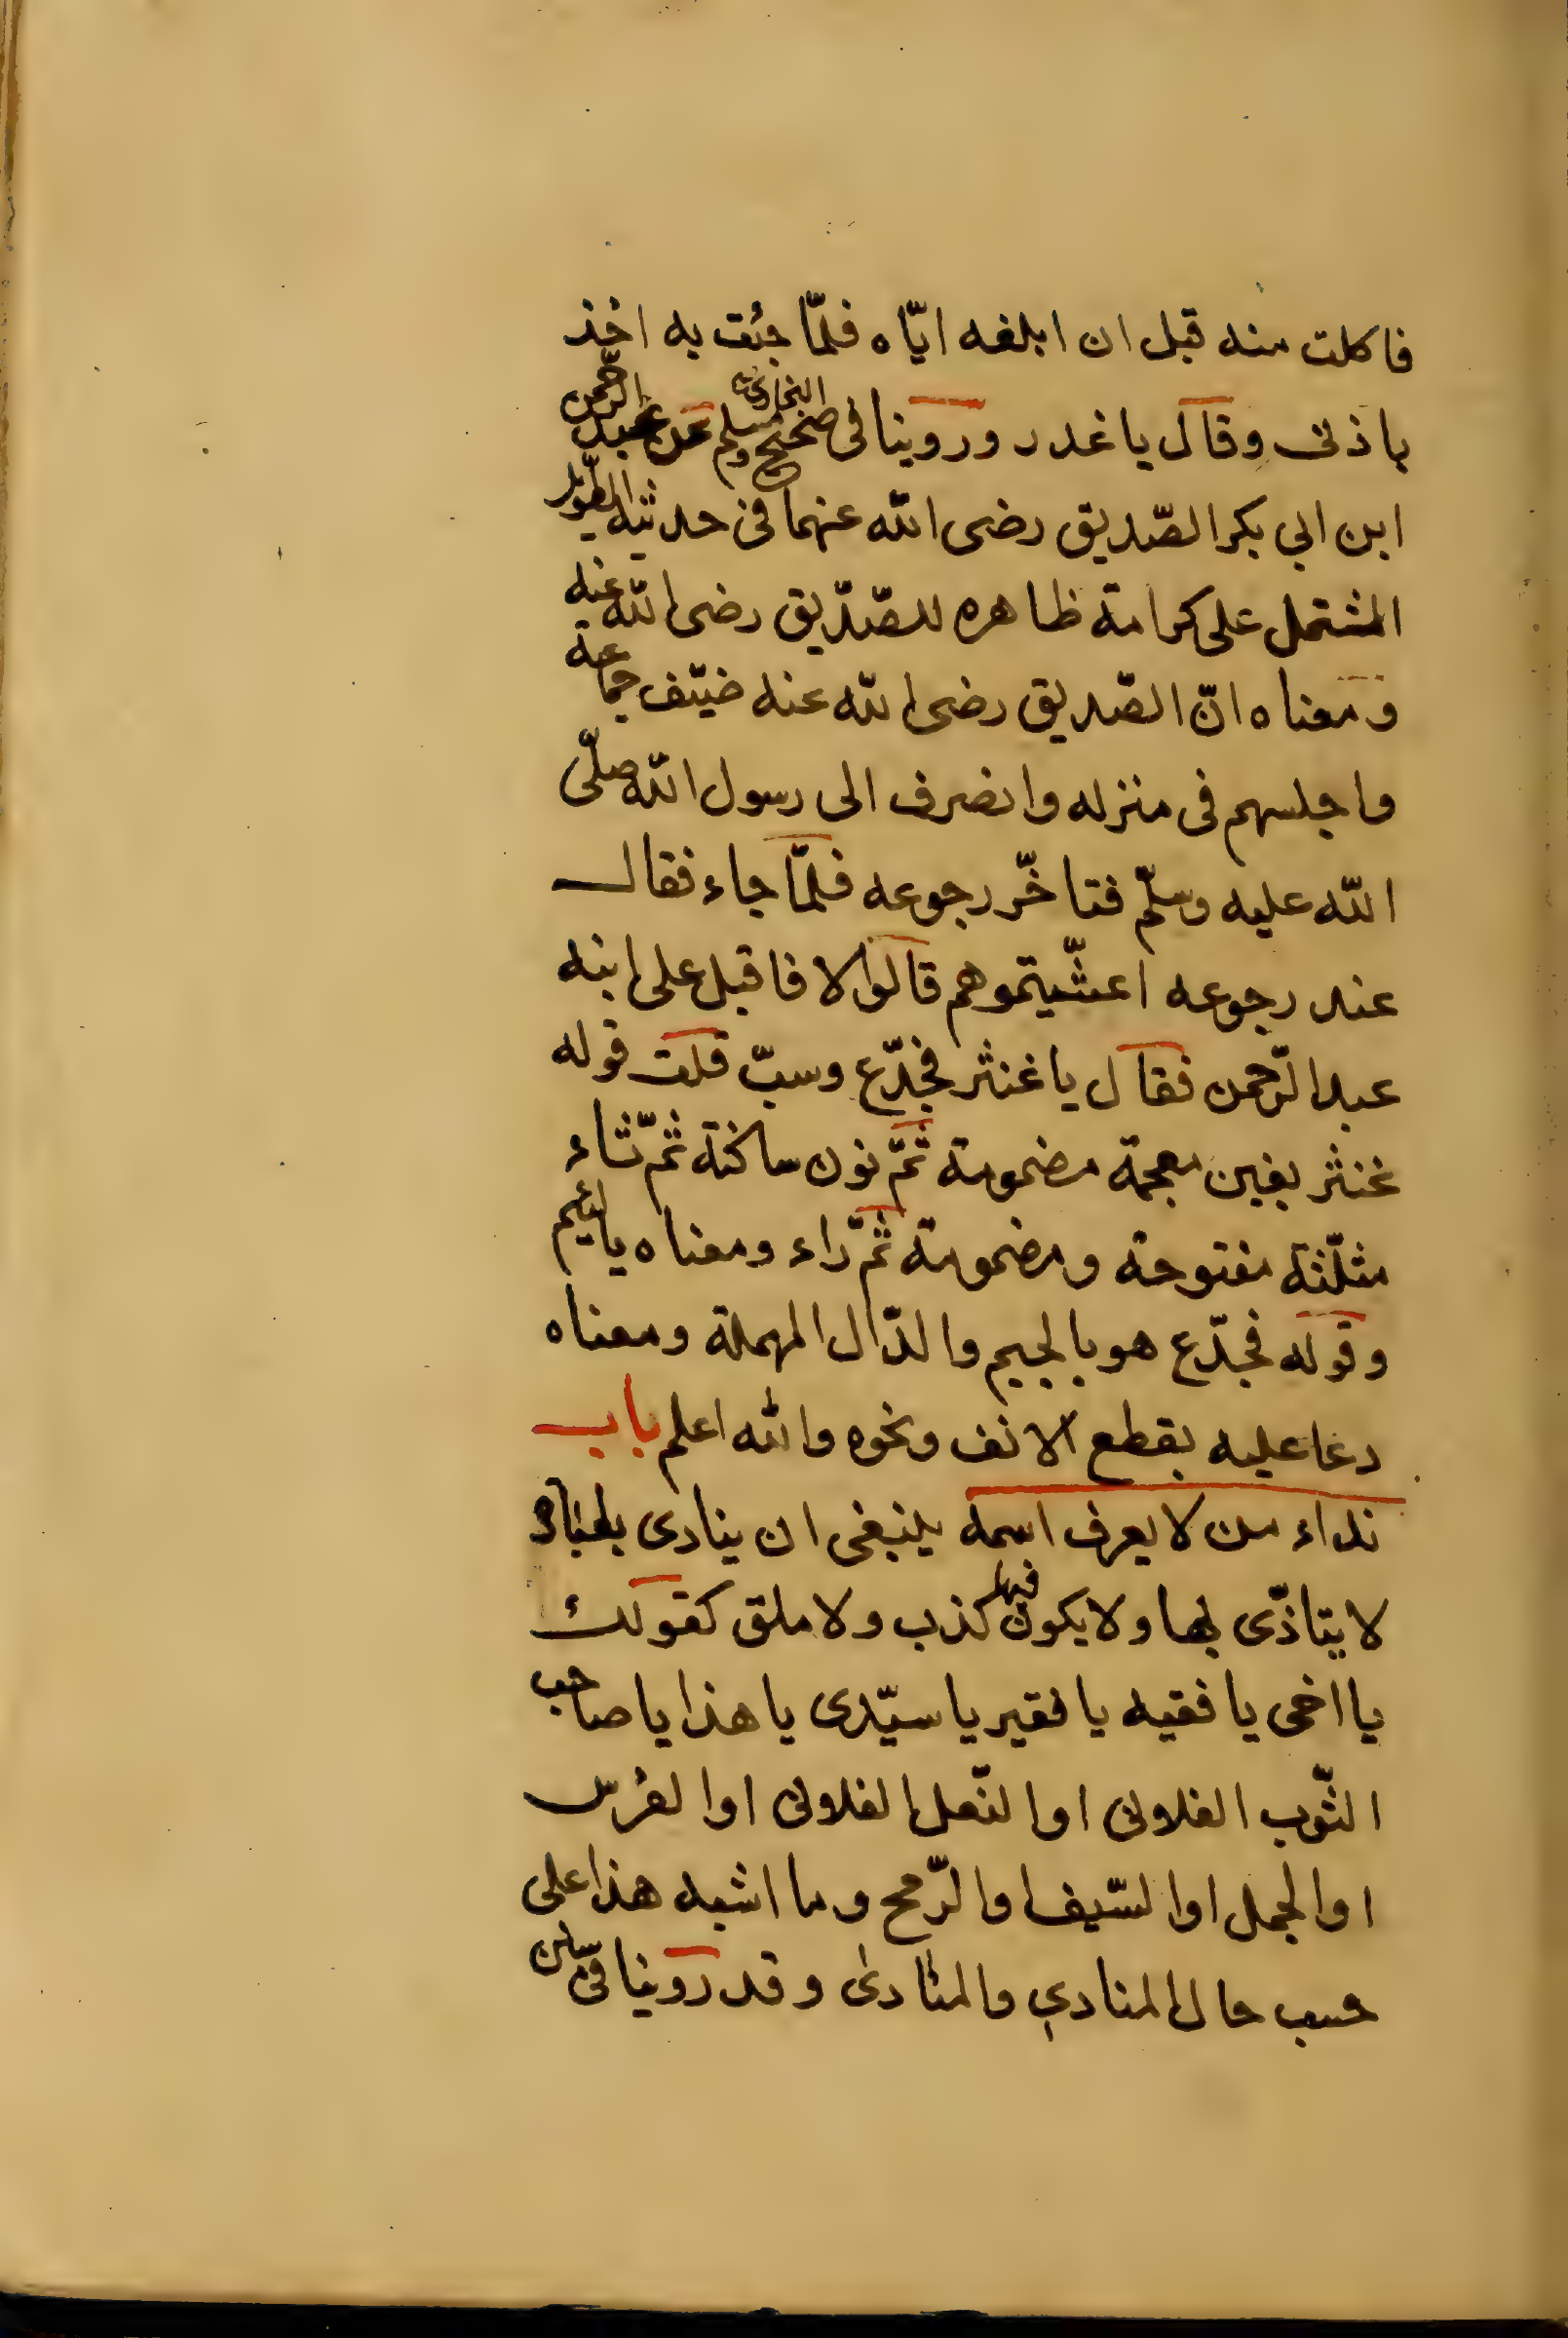 فاكلت منه قبل ان ابلغه ايّاه فلمّا جئت به اخذ
باذنى وقال يا غدر وروينا فى صحيح البخارى ومسلم عن عبد الرّحمن
ابن ابي بكر الصّديق رضى الله عنهما فى حديثه الطّويل
المشتمل على كرامة ظاهره للصّدّيق رضى الله عنه
ومعناه انّ الصّديق رضى الله عنه ضيّف جماعة
واجلسهم فى منزله وانصرف الى رسول الله صلّى
الله عليه وسلّم فتاخّر رجوعه فلمّا جاء فقال
عند رجوعه اعشّيتموهم قالوا لا فاقبل على ابنه
عبد الرّحمن فقال يا غنثر فجدّع وسبّ قلت قوله
غنثر بغين معجمة مضمومة ثمّ نون ساكنة ثمّ ثاء
مثلّثة مفتوحة ومضمومة ثمّ راء ومعناه يا لئيم
وقوله فجدّع هو بالجيم والدّال المهملة ومعناه
دعا عليه بقطع الانف ونحوه والله اعلم باب
نداء من لا يعرف اسمه ينبغى ان ينادى بعبارة
لا يتاذّى بها ولا يكون فيها كذب ولا ملق كقولك
يا اخى يا فقيه يا فقير يا سيّدى يا هذا يا صاحب
الثّوب الفلانى او النّعل الفلانى او الفرس
او الجمل او السّيف او الرّمح وما اشبه هذا على
حسب حال المنادي والمنادى وقد روينا فى سنن